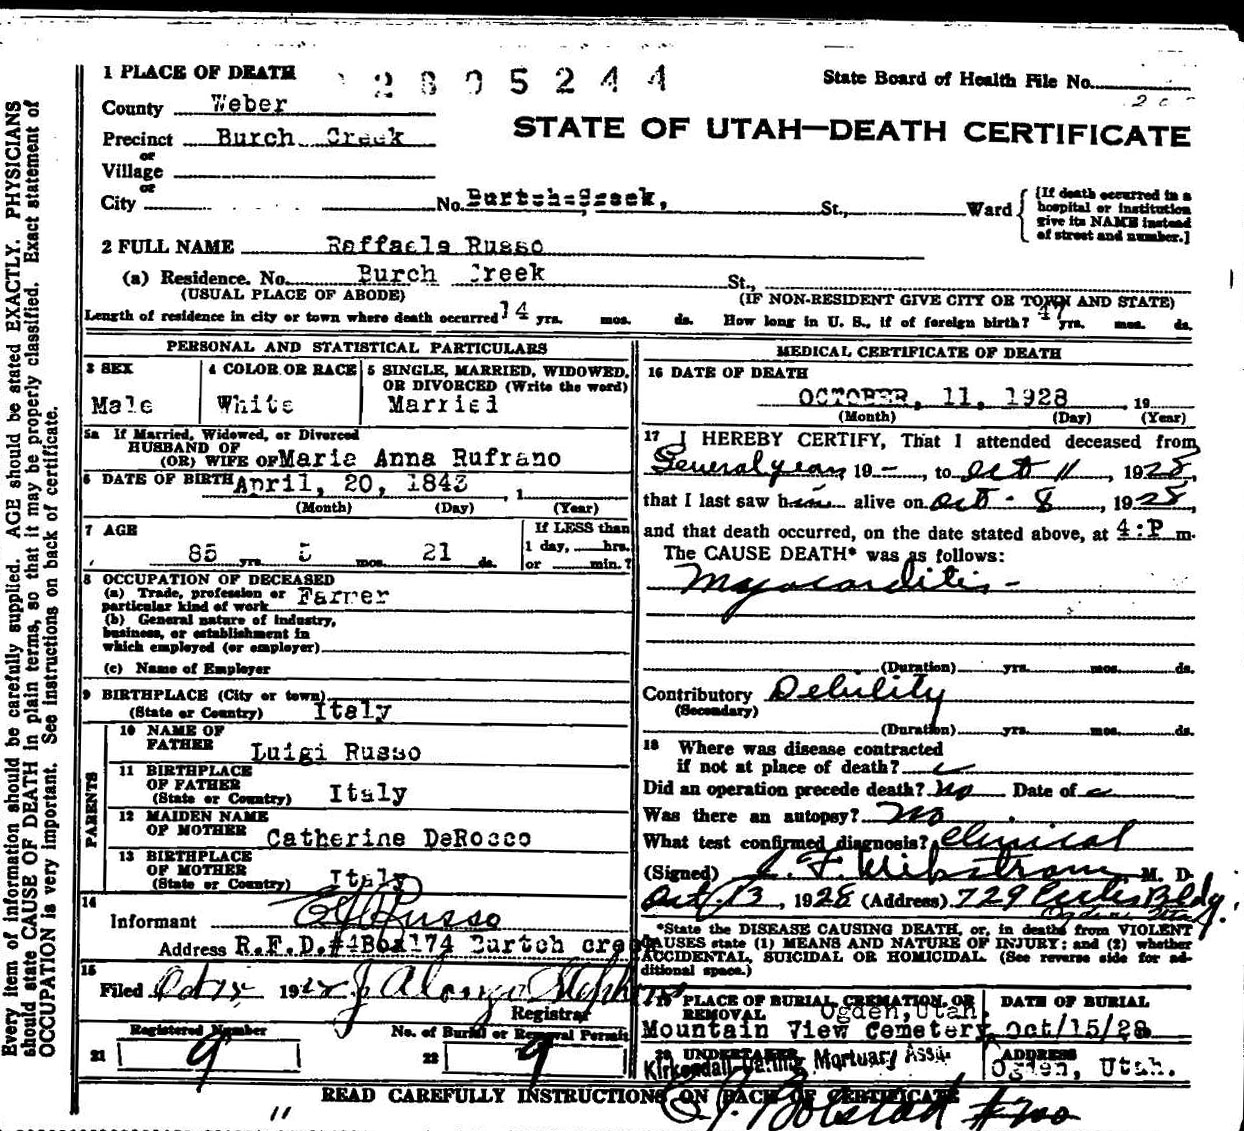 1 PLACE OF DEATH
2805244
State Board of Health File No.
County Weber
STATE OF UTAH—DEATH CERTIFICATE
Precinct Burch Creek
or
Village
or
City No. Burtch-Creek, St., Ward
[If death occurred in a hospital or institution give its NAME instead of street and number.]
2 FULL NAME Raffaele Russo
(a) Residence. No. Burch Creek St.,
(USUAL PLACE OF ABODE) (IF NON-RESIDENT GIVE CITY OR TOWN AND STATE)
Length of residence in city or town where death occurred 14 yrs. mos. ds. How long in U. S., if of foreign birth? 47 yrs. mos. ds.
PERSONAL AND STATISTICAL PARTICULARS
3 SEX
Male
4 COLOR OR RACE
White
5 SINGLE, MARRIED, WIDOWED, OR DIVORCED (Write the word)
Married
5a If Married, Widowed, or Divorced
HUSBAND OF
(OR) WIFE OF Marie Anna Rufrano
6 DATE OF BIRTH April, 20, 1843, 1
(Month) (Day) (Year)
7 AGE
85 yrs. 5 mos. 21 ds.
If LESS than
1 day, hrs.
or min.?
8 OCCUPATION OF DECEASED
(a) Trade, profession or
particular kind of work Farmer
(b) General nature of industry,
business, or establishment in
which employed (or employer)
(c) Name of Employer
9 BIRTHPLACE (City or town)
(State or Country) Italy
PARENTS
10 NAME OF
FATHER Luigi Russo
11 BIRTHPLACE
OF FATHER
(State or Country) Italy
12 MAIDEN NAME
OF MOTHER Catherine DeRosco
13 BIRTHPLACE
OF MOTHER
(State or Country) Italy
14
Informant E J Russo
Address R.F.D.#4Box174 Burtch creek
15
Filed Oct 15 1928 J Alonzo Stephens
Registrar
Registered Number
21 9
No. of Burial or Removal Permit
22 9
MEDICAL CERTIFICATE OF DEATH
16 DATE OF DEATH
OCTOBER, 11, 1928, 19
(Month) (Day) (Year)
17 I HEREBY CERTIFY, That I attended deceased from
Several years, 19 -, to Oct 11, 1928,
that I last saw him alive on Oct - 8, 1928,
and that death occurred, on the date stated above, at 4:P m.
The CAUSE DEATH* was as follows:
Myocarditis -
(Duration) yrs. mos. ds.
Contributory Debility
(Secondary)
(Duration) yrs. mos. ds.
18 Where was disease contracted
if not at place of death?
Did an operation precede death? No Date of
Was there an autopsy? No
What test confirmed diagnosis? Clinical
(Signed) M. D.
Oct, 13, 1928 (Address) 729 Eccles Bldg.
Ogden Utah
*State the DISEASE CAUSING DEATH, or, in deaths from VIOLENT
CAUSES state (1) MEANS AND NATURE OF INJURY; and (2) whether
ACCIDENTAL, SUICIDAL OR HOMICIDAL. (See reverse side for additional space.)
19 PLACE OF BURIAL, CREMATION, OR
REMOVAL Ogden, Utah.
Mountain View Cemetery
DATE OF BURIAL
Oct/15/28
20 UNDERTAKER
Kirkendall-Darling Mortuary Assn.
ADDRESS
Ogden, Utah.
READ CAREFULLY INSTRUCTIONS ON BACK OF CERTIFICATE
Every item of information should be carefully supplied. AGE should be stated EXACTLY. PHYSICIANS
should state CAUSE OF DEATH in plain terms, so that it may be properly classified. Exact statement of
OCCUPATION is very important. See instructions on back of certificate.